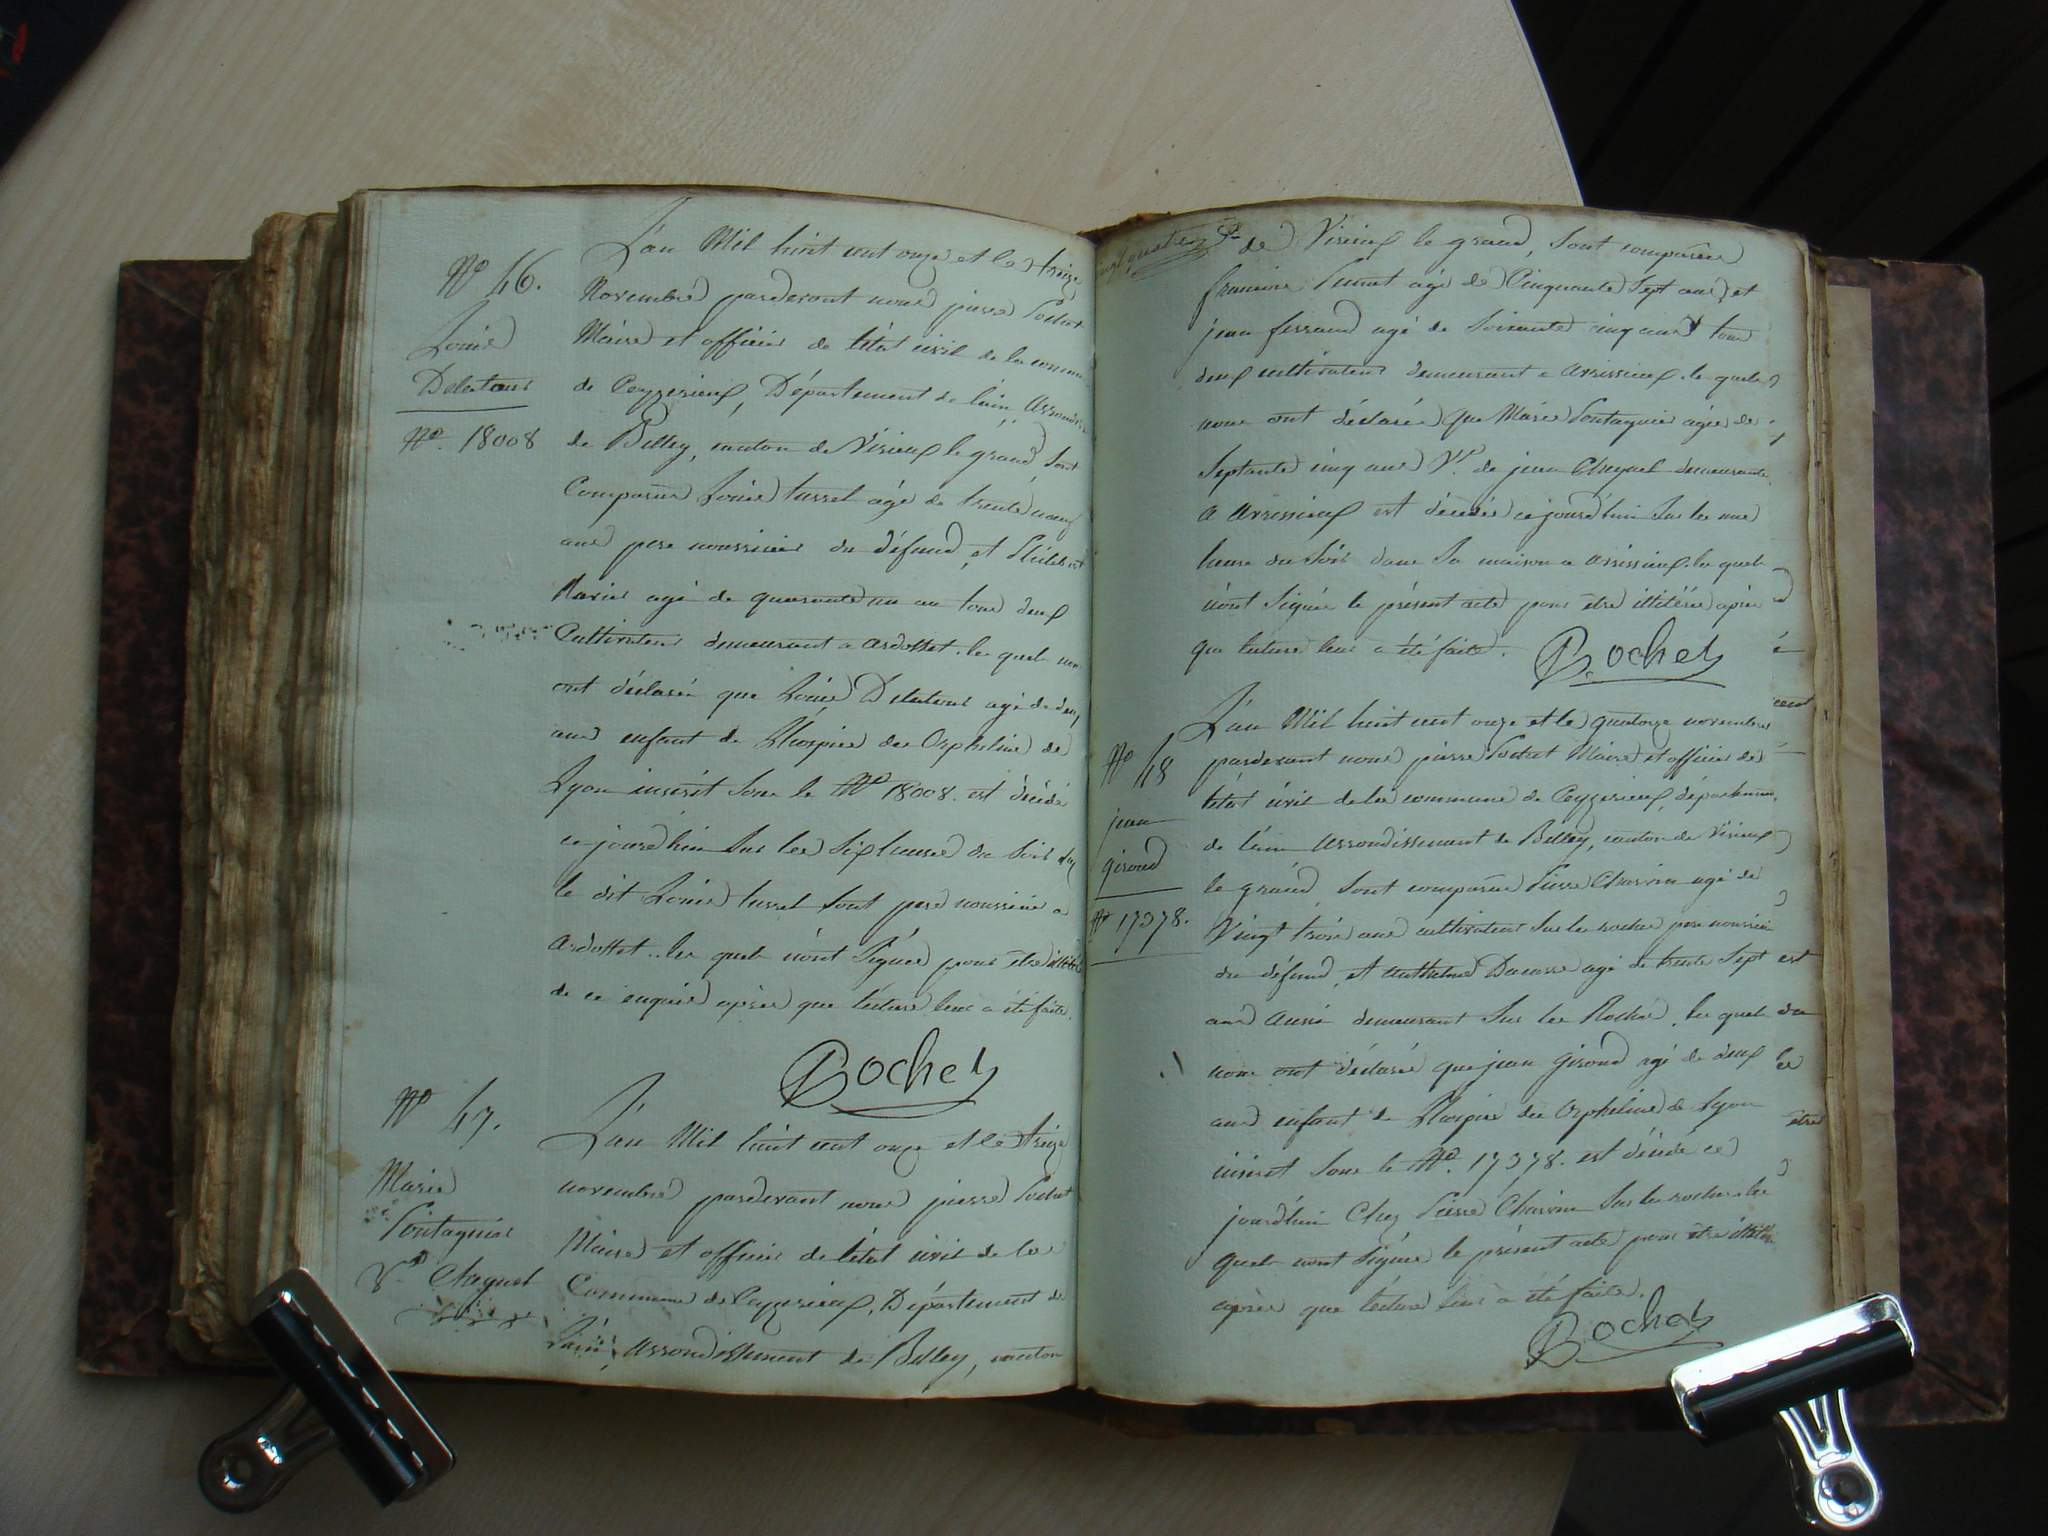 N° 46.
Louis
Delatour
N°. 18008
L'an Mil huit cent onze et le treize
Novembre pardevant nous pierre Rochet
Maire et officier de l'état civil de la commu
de Ceyzerieux, Département de l'ain, Arrondis
de Belley, canton de Virieux le grand, sont
Comparus Louis turrel agé de trente neuf
ans pere nourricier du défund, et
agé de quarante un an tous deux
Cultivateurs demeurant a ardosset. les quels nous
ont déclarés que Louis Delatour agé de deux
ans enfant de L'hospice des Orphelins de
Lyon inserit sous le N° 18008. est décédé
ce jourd'hui sur les six heures du soir chez
le dit Louis turrel sont pere nourricié a
ardosset.. les quels n'ont signés pour être illitérés
de ce enquis après que lecture leur a été faite.
Rochet
N° 47.
Marie
Pontagnier
V.e Cheynel
L'an Mil huit cent onze et le treize
novembre pardevant nous pierre Rochet
Maire et officier de l'état civil de la
Commune de Ceyzerieux, Département de
l'ain, Arrondissement de Belley, canton
de Virieux le grand, sont comparus
agé de Cinquante sept ans, et
jean ferrand agé de soixante cinq ans tous
deux cultivateurs demeurant a avrissieux. les quels
nous ont déclarés que Marie Pontagnier agée de
septante cinq ans V.e de jean Cheynel demeurante
a avrissieux est décédée ce jourd'hui sur les une
heure du soir dans sa maison a avrissieux. les quels
n'ont signés le présent acte pour être illitérés après
que lecture leur a été faite.
Rochet
N° 48
jean
giroud
N° 17378.
L'an Mil huit cent onze et le quatorze novembre
pardevant nous pierre Rochet Maire et officier de
l'état civil de la commune de Ceyzerieux, département
de l'ain Arrondissement de Belley, canton de Virieux
le grand, sont comparus Pierre Charvin agé de
Vingt trois ans cultivateur sur les roches pere nourricier
du défund, et anthelme Ducarre agé de trente sept
ans aussi demeurant sur les Roches, les quels
nous ont déclarés que jean giroud agé de deux
ans enfant de L'hospice des Orphelins de Lyon
inserit sous le N°. 17378. est décédé ce
jourd'hui Chez Pierre Charvin sur les roches. les
quels n'ont signés le présent acte pour être illitérés
après que lecture leur a été faite.
Rochet
est
du
les
être